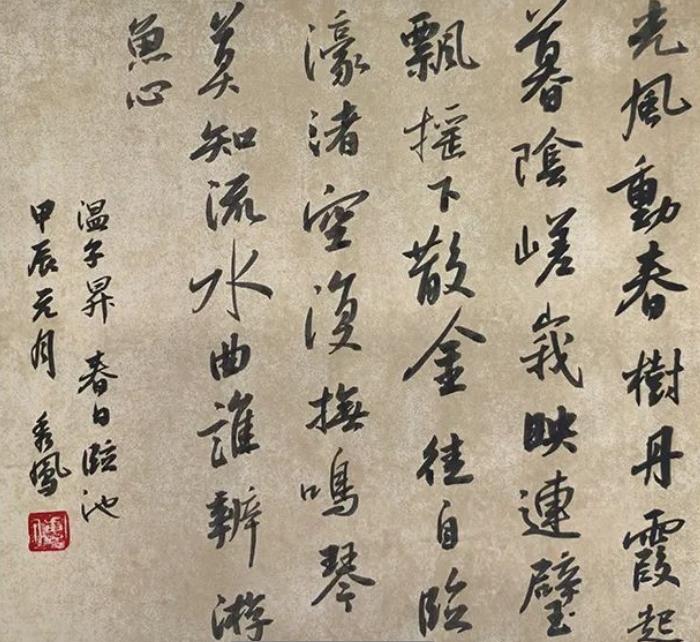 光風動春樹丹霞起
暮陰嵯峩映連璧
飄摇下散金徒自臨
濠渚空復撫鳴琴
莫知流水曲誰辨游
魚心
温子昇 春日臨池
甲辰元月 秀鳳